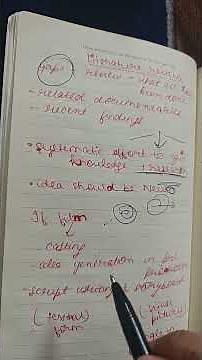 Literature Review
review - what all has
been done
Topic
- related documentaries
- recent findings
• Systematic effort to gain
knowledge
• idea should be New
If film
casting
- idea generation in
- script writing & storyboard
(textual
form)
(visual
pictures)